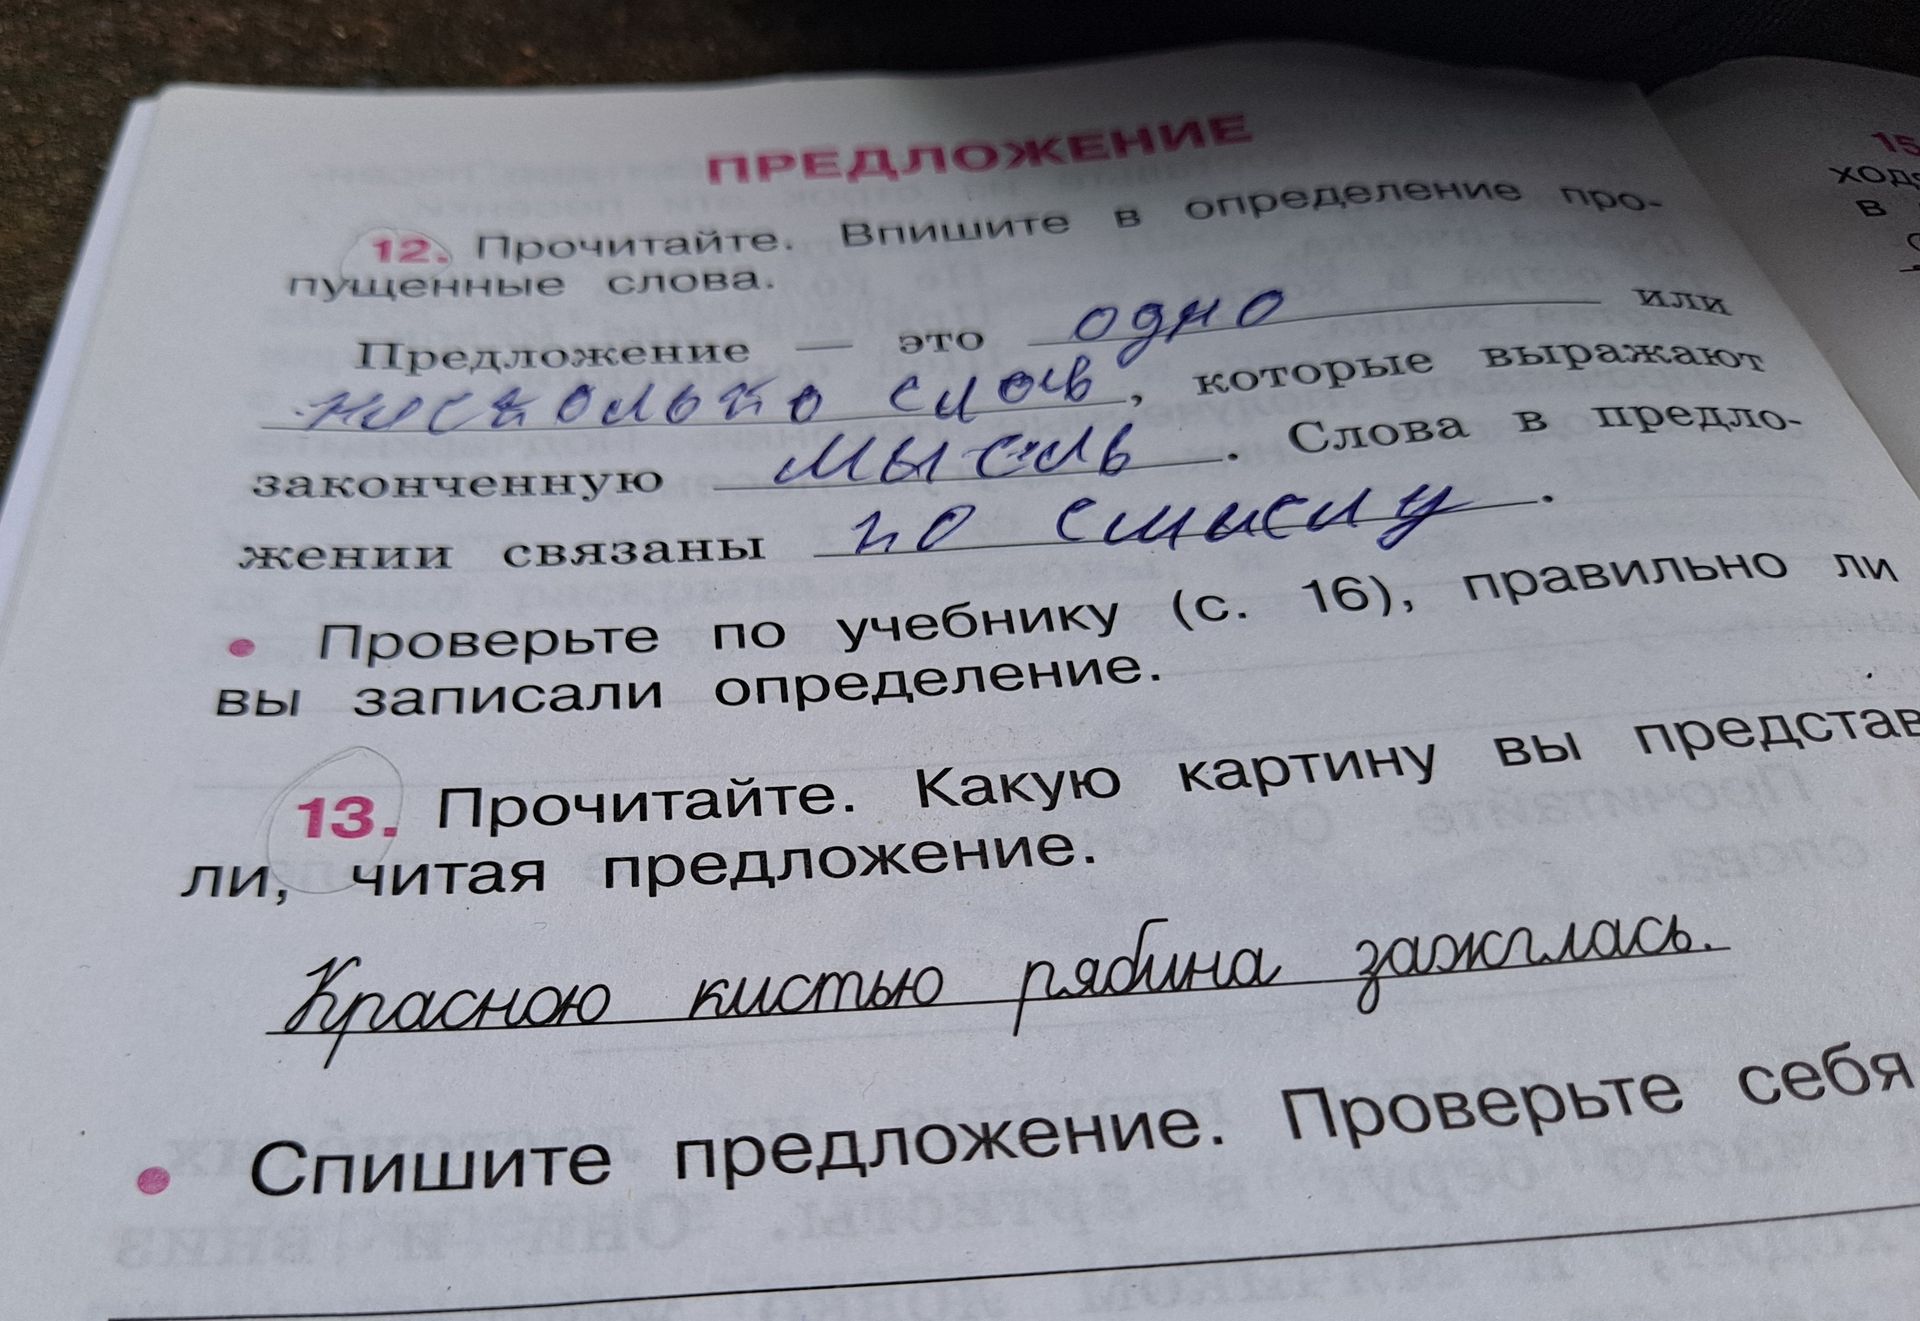 ПРЕДЛОЖЕНИЕ
12. Прочитайте. Впишите в определение про-
пущенные слова.
Предложение — это одно или
несколько слов, которые выражают
законченную мысль. Слова в предло-
жении связаны по смыслу.
• Проверьте по учебнику (с. 16), правильно ли
вы записали определение.
13. Прочитайте. Какую картину вы представ
ли, читая предложение.
Красною кистью рябина зажглась.
• Спишите предложение. Проверьте себя
15
ходя
в